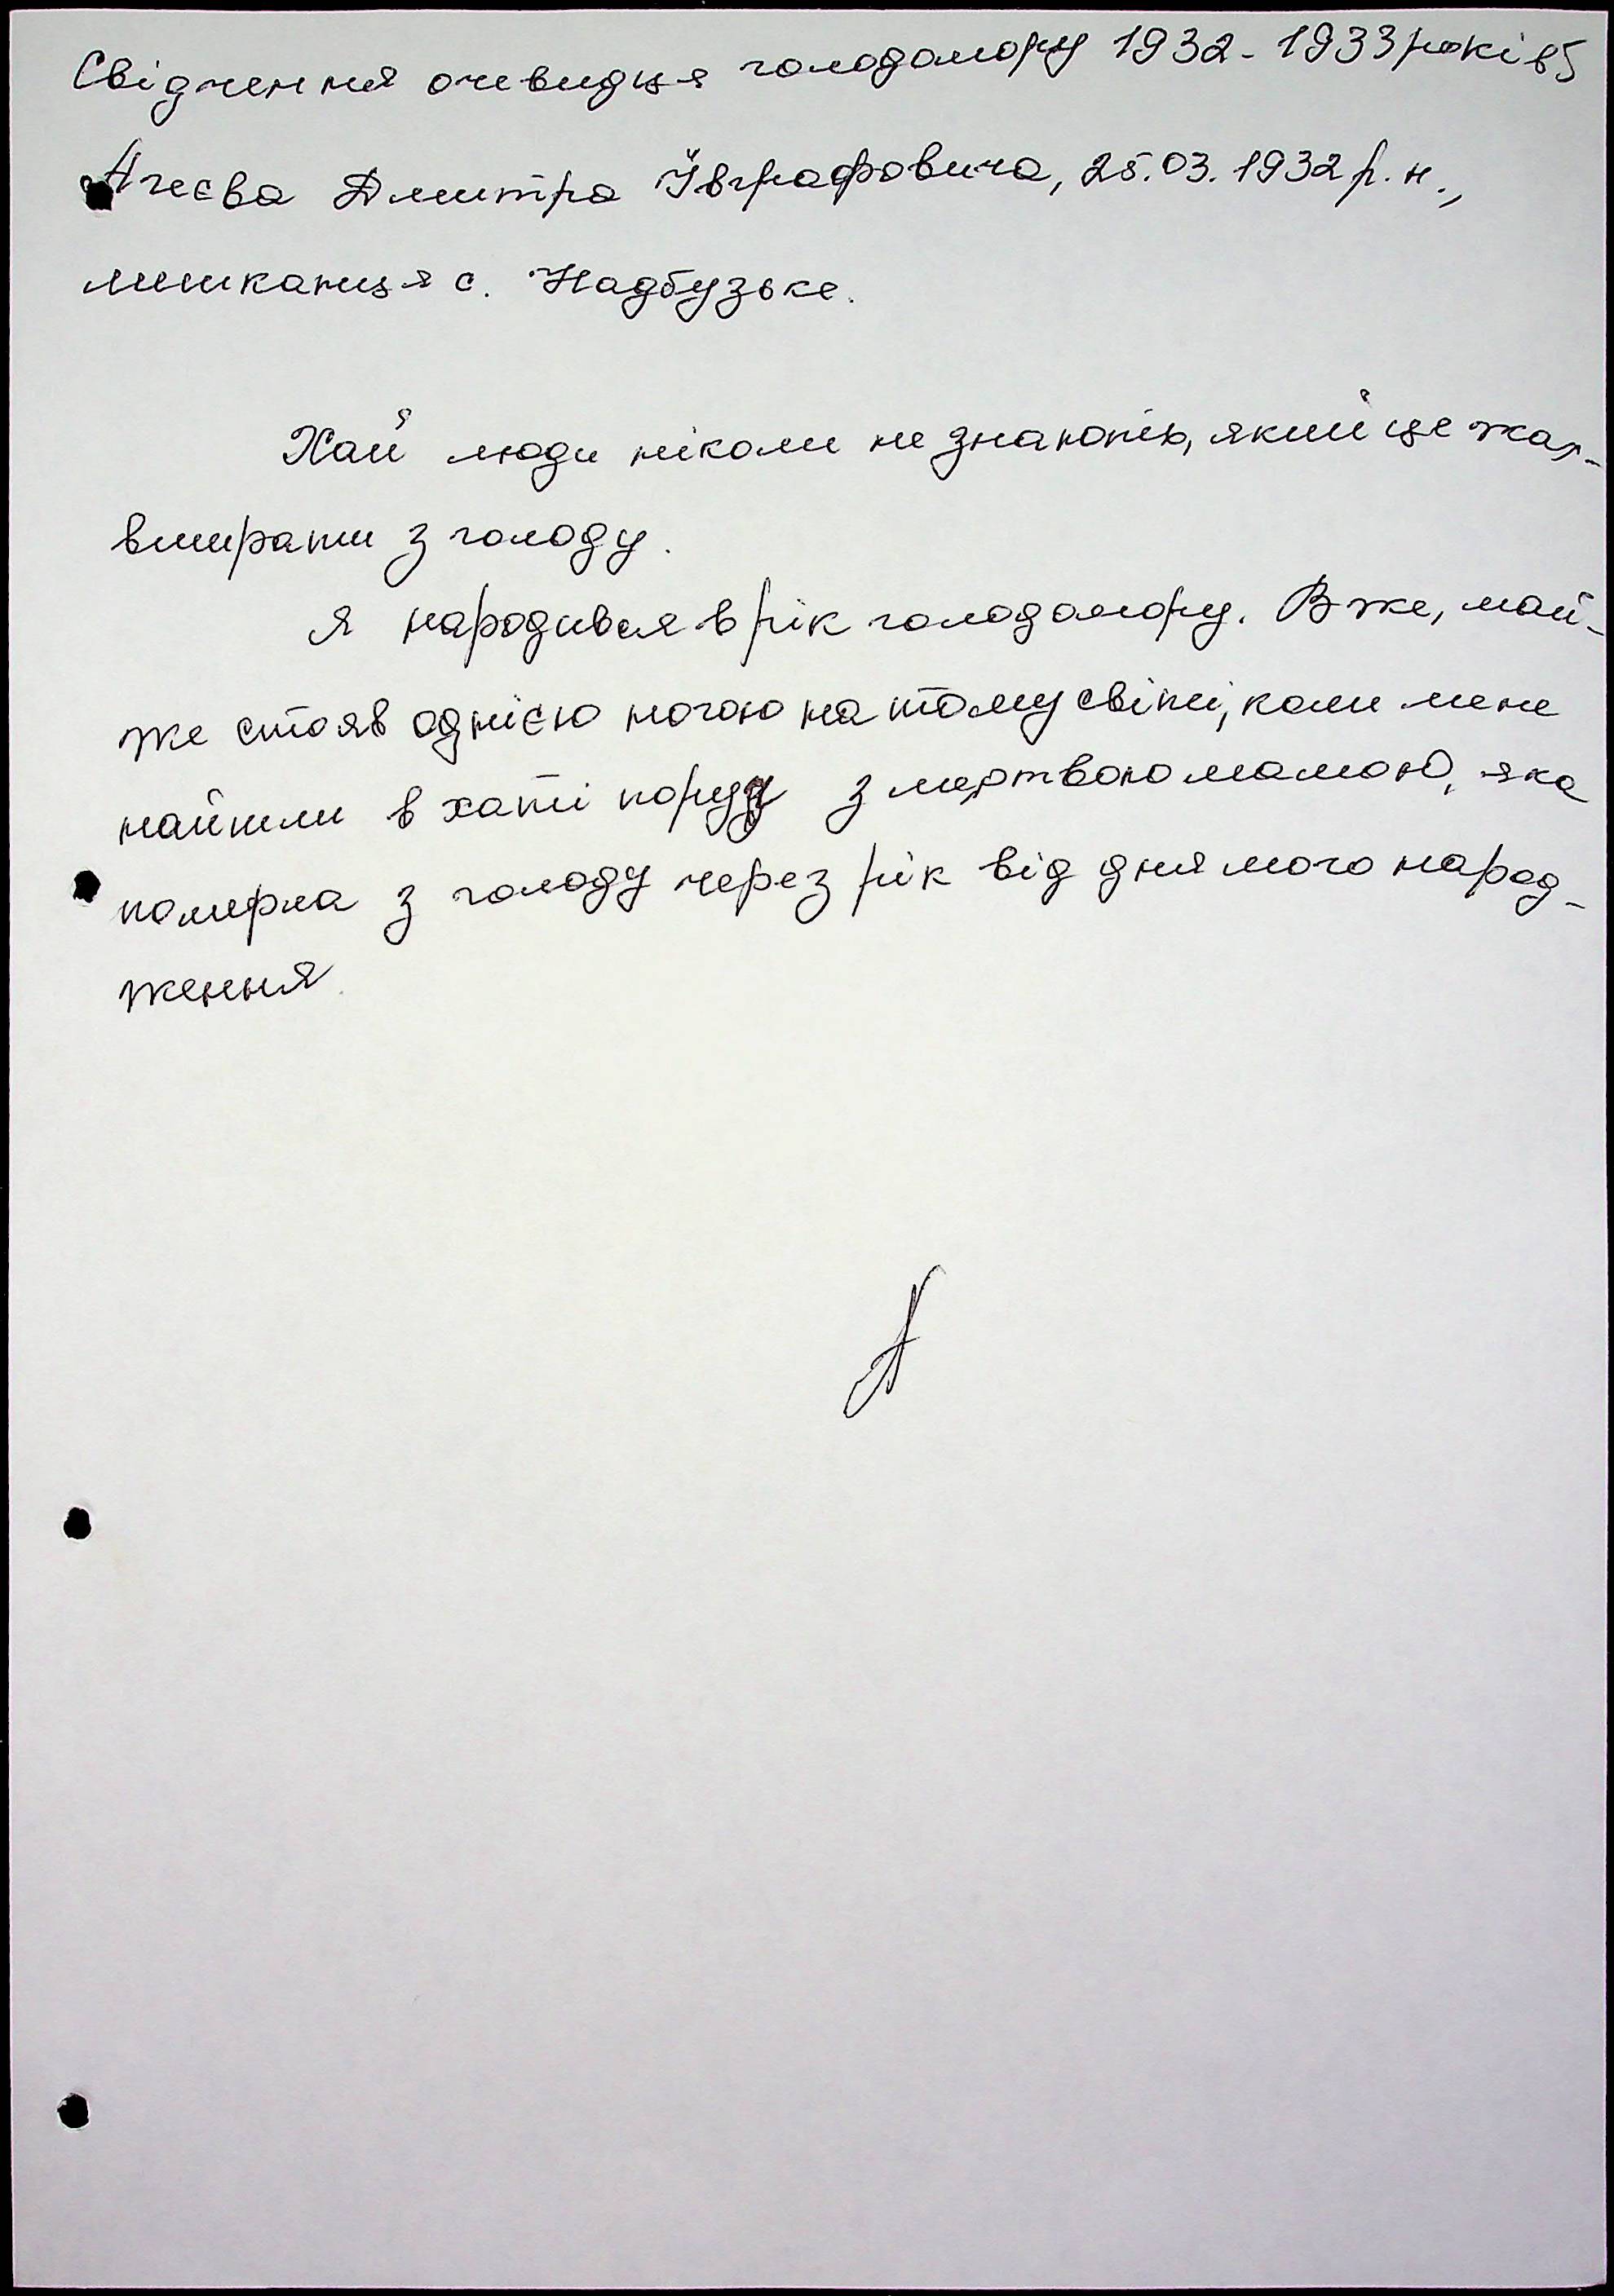 Свідчення очевидця голодомору 1932-1933 років
Агєєва Дмитра Ївграфовича, 25.03.1932 р.н.,
мешканця с. Надбузьке.
Хай люди ніколи не знають, який це жах-
вмирати з голоду.
Я народився в рік голодомору. Вже, май-
же стояв однією ногою на тому світі, коли мене
найшли в хаті поруч з мертвою мамою, яка
померла з голоду через рік від дня мого народ-
ження.